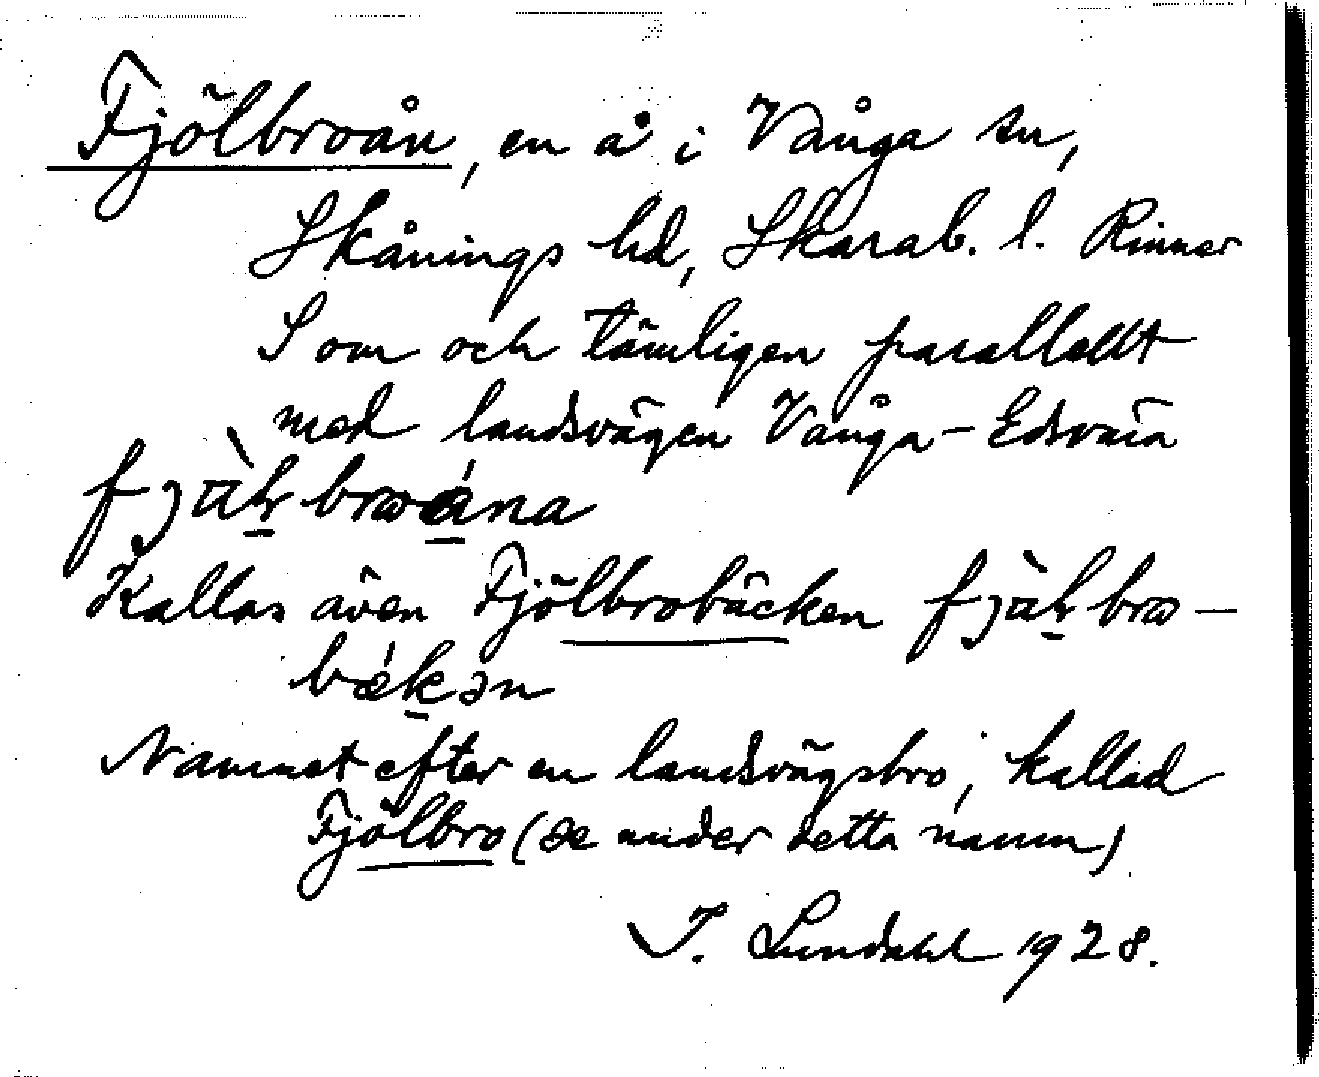 Fjölbroån, en å i Vånga sn,
Skånings hd, Skarab. l. Rinner
S om och tämligen parallellt
med landsvägen Vånga - Edsvära
Kallas även Fjölbrobäcken
Namnet efter en landsvägsbro, kallad
Fjölbro (se under detta namn)
I. Lundahl 1928.